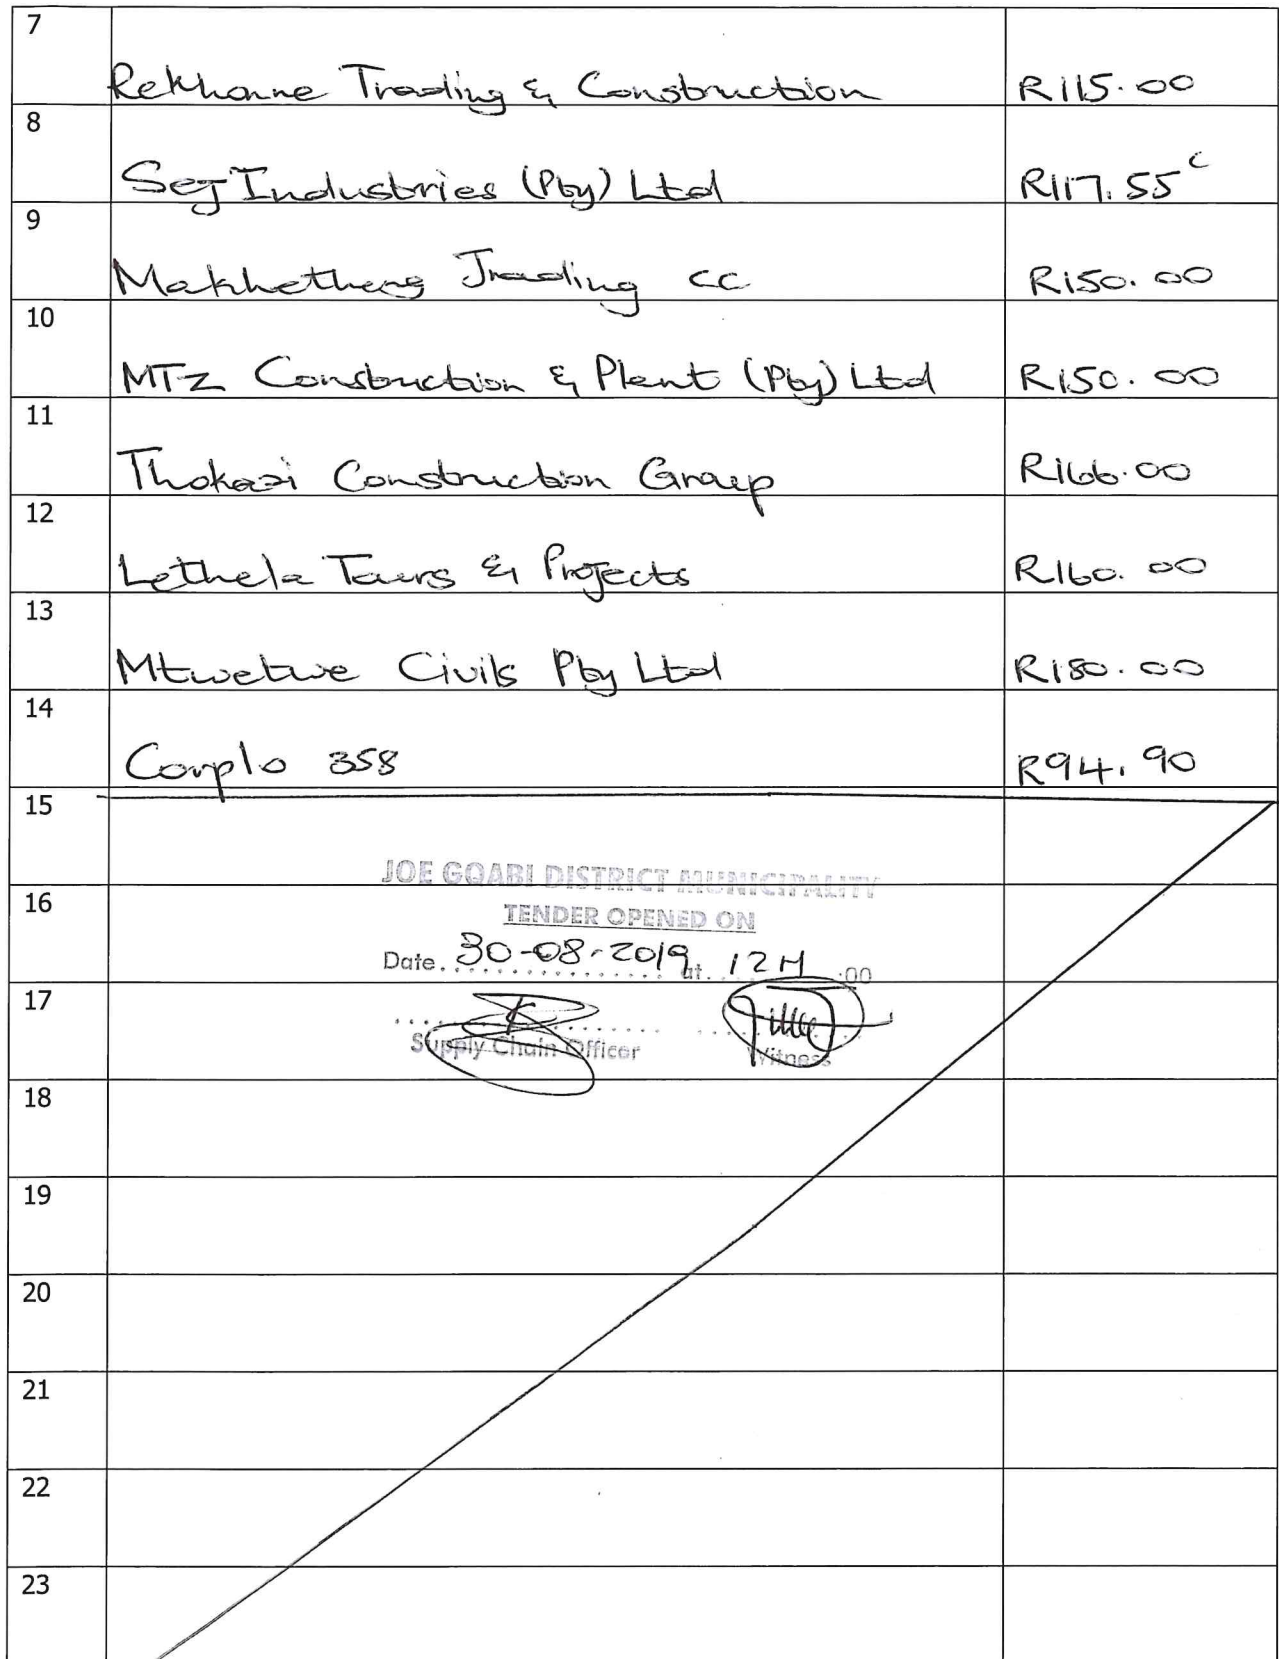 7
Rekhonne Trading & Construction R115.00
8
SEJ Industries (Pty) Ltd R117.55c
9
Makhetheng Trading cc R150.00
10
MTZ Construction & Plant (Pty) Ltd R150.00
11
Thokozi Construction Group R166.00
12
Lethela Tours & Projects R160.00
13
Mtwetwe Civils Pty Ltd R180.00
14
Corplo 358 R94.90
15
JOE GQABI DISTRICT MUNICIPALITY
16
TENDER OPENED ON
Date 30-08-2019 at 12H 00
17
Supply Chain Officer Witness
18
19
20
21
22
23